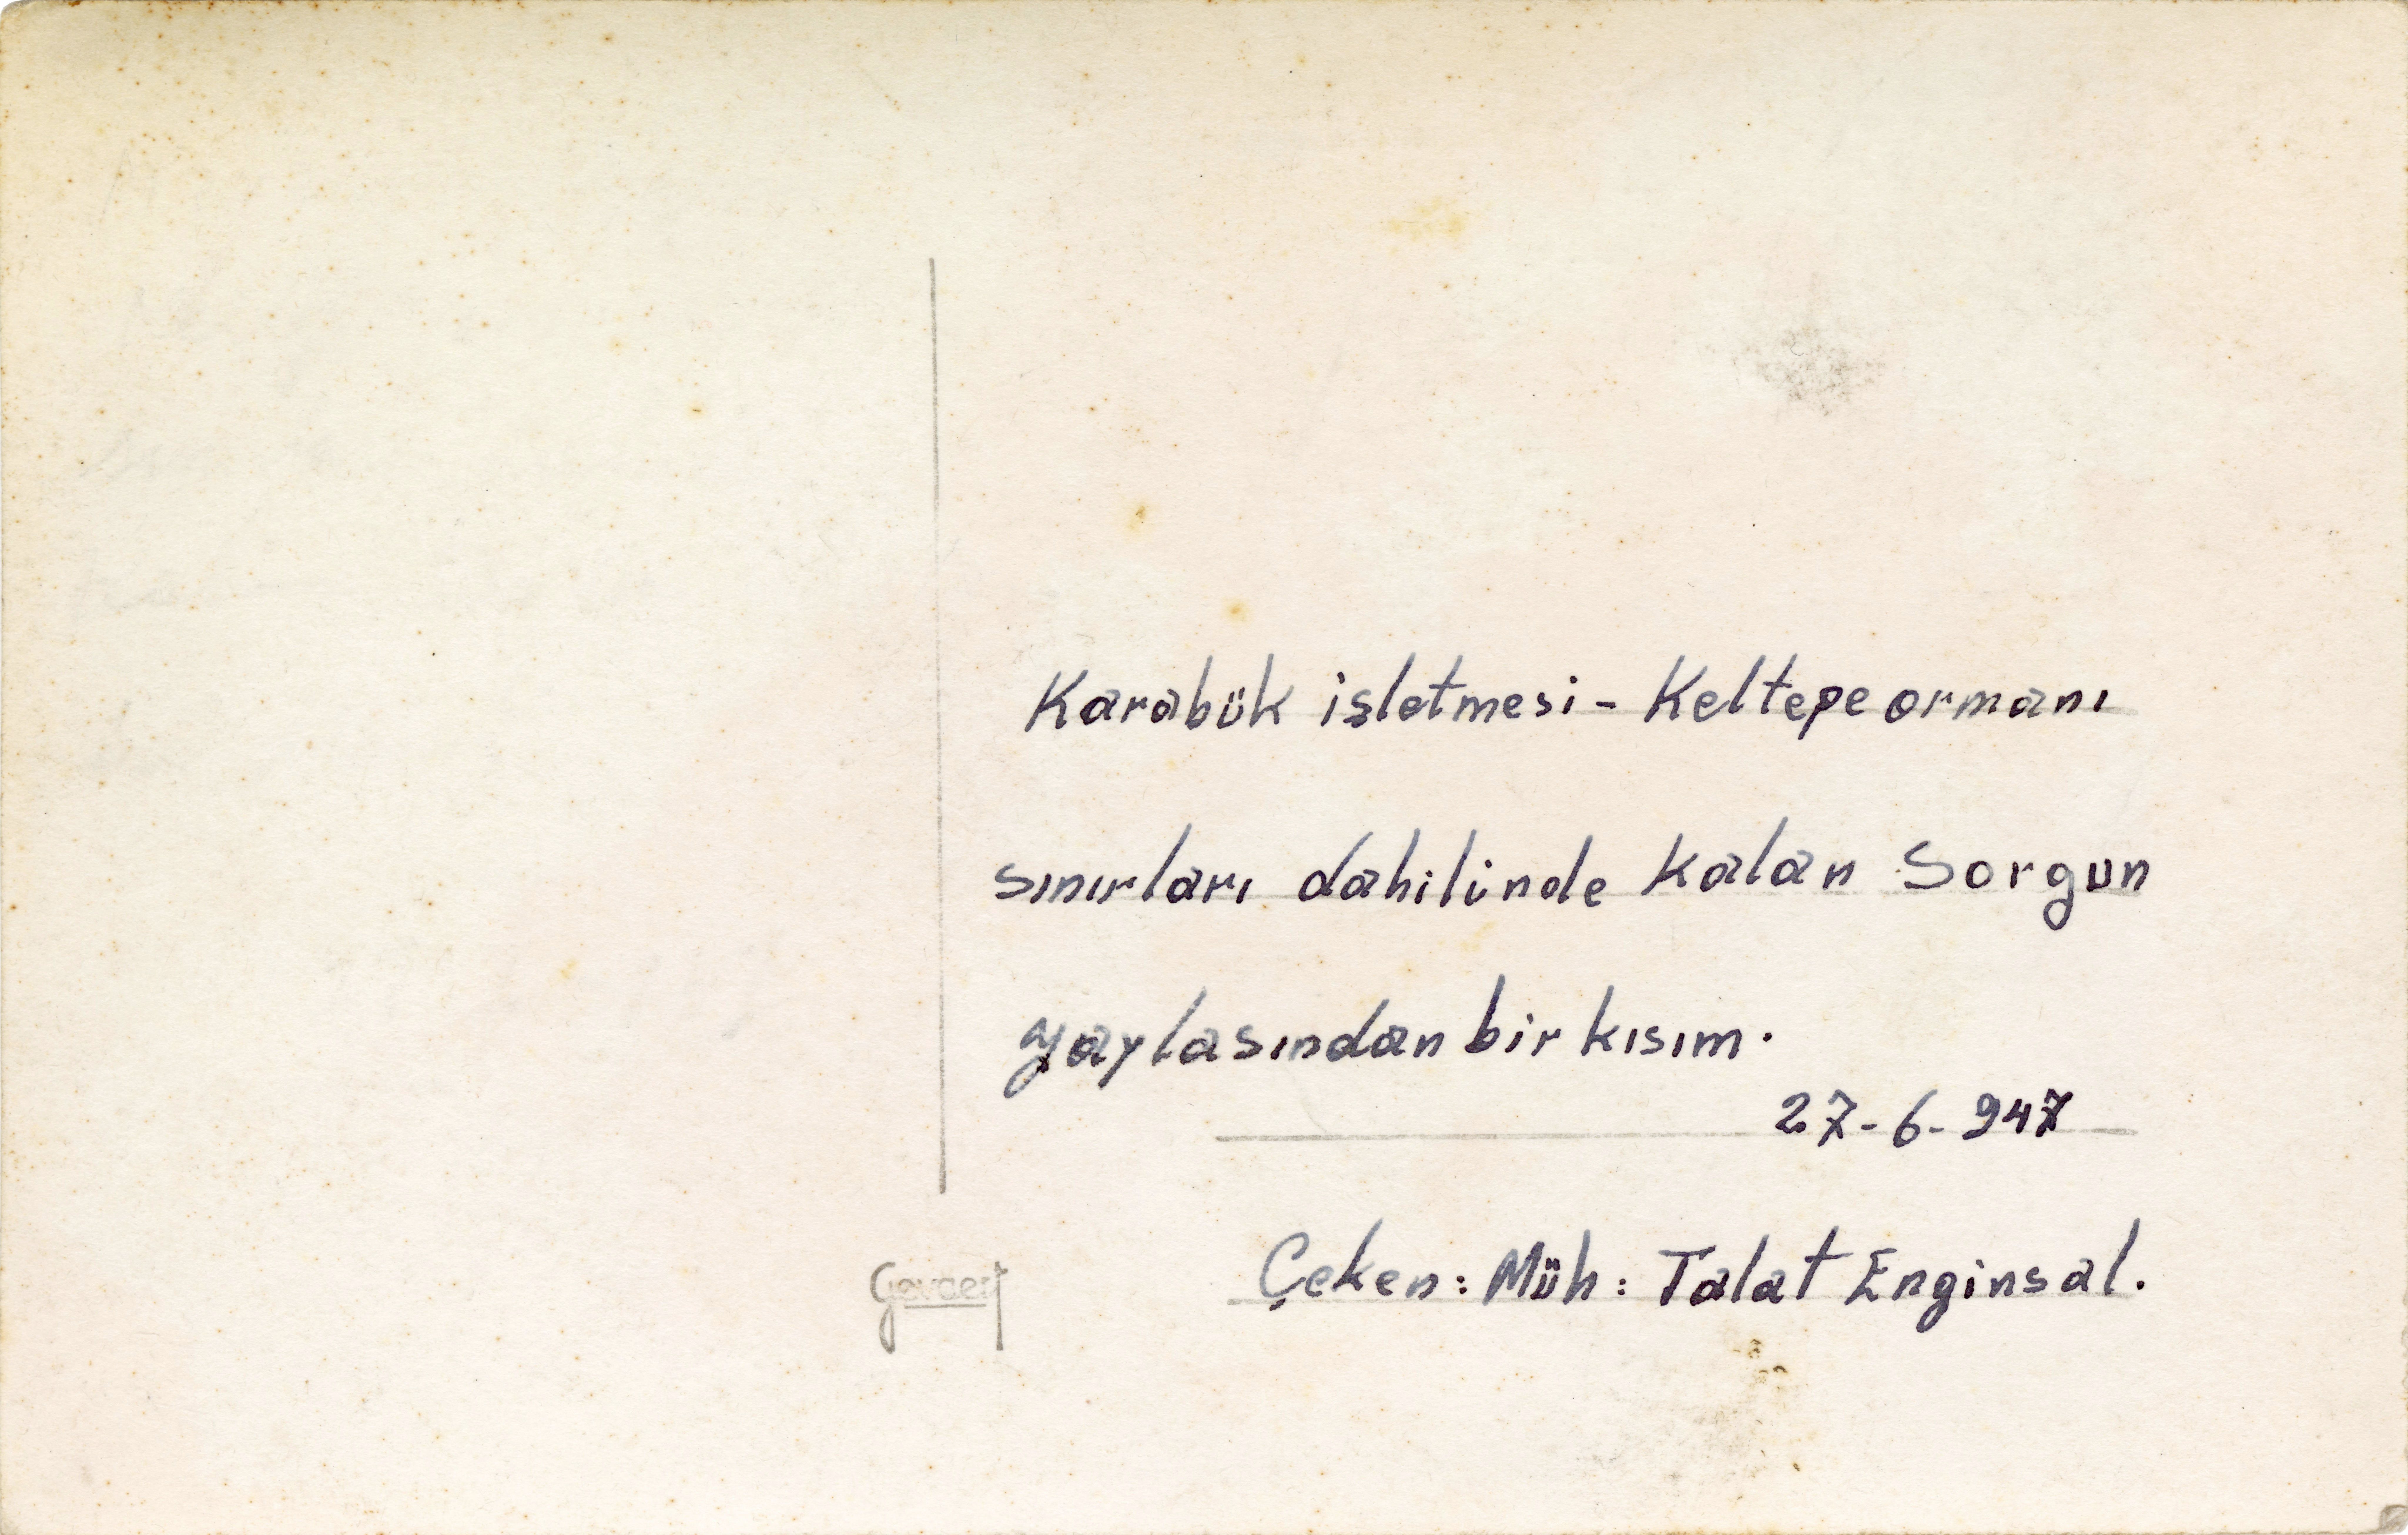 Karabük işletmesi - Keltepe ormanı
sınırları dahilinde kalan Sorgun
yaylasından bir kısım.
27-6-947
Çeken: Müh: Talat Enginsal.
Gevaert